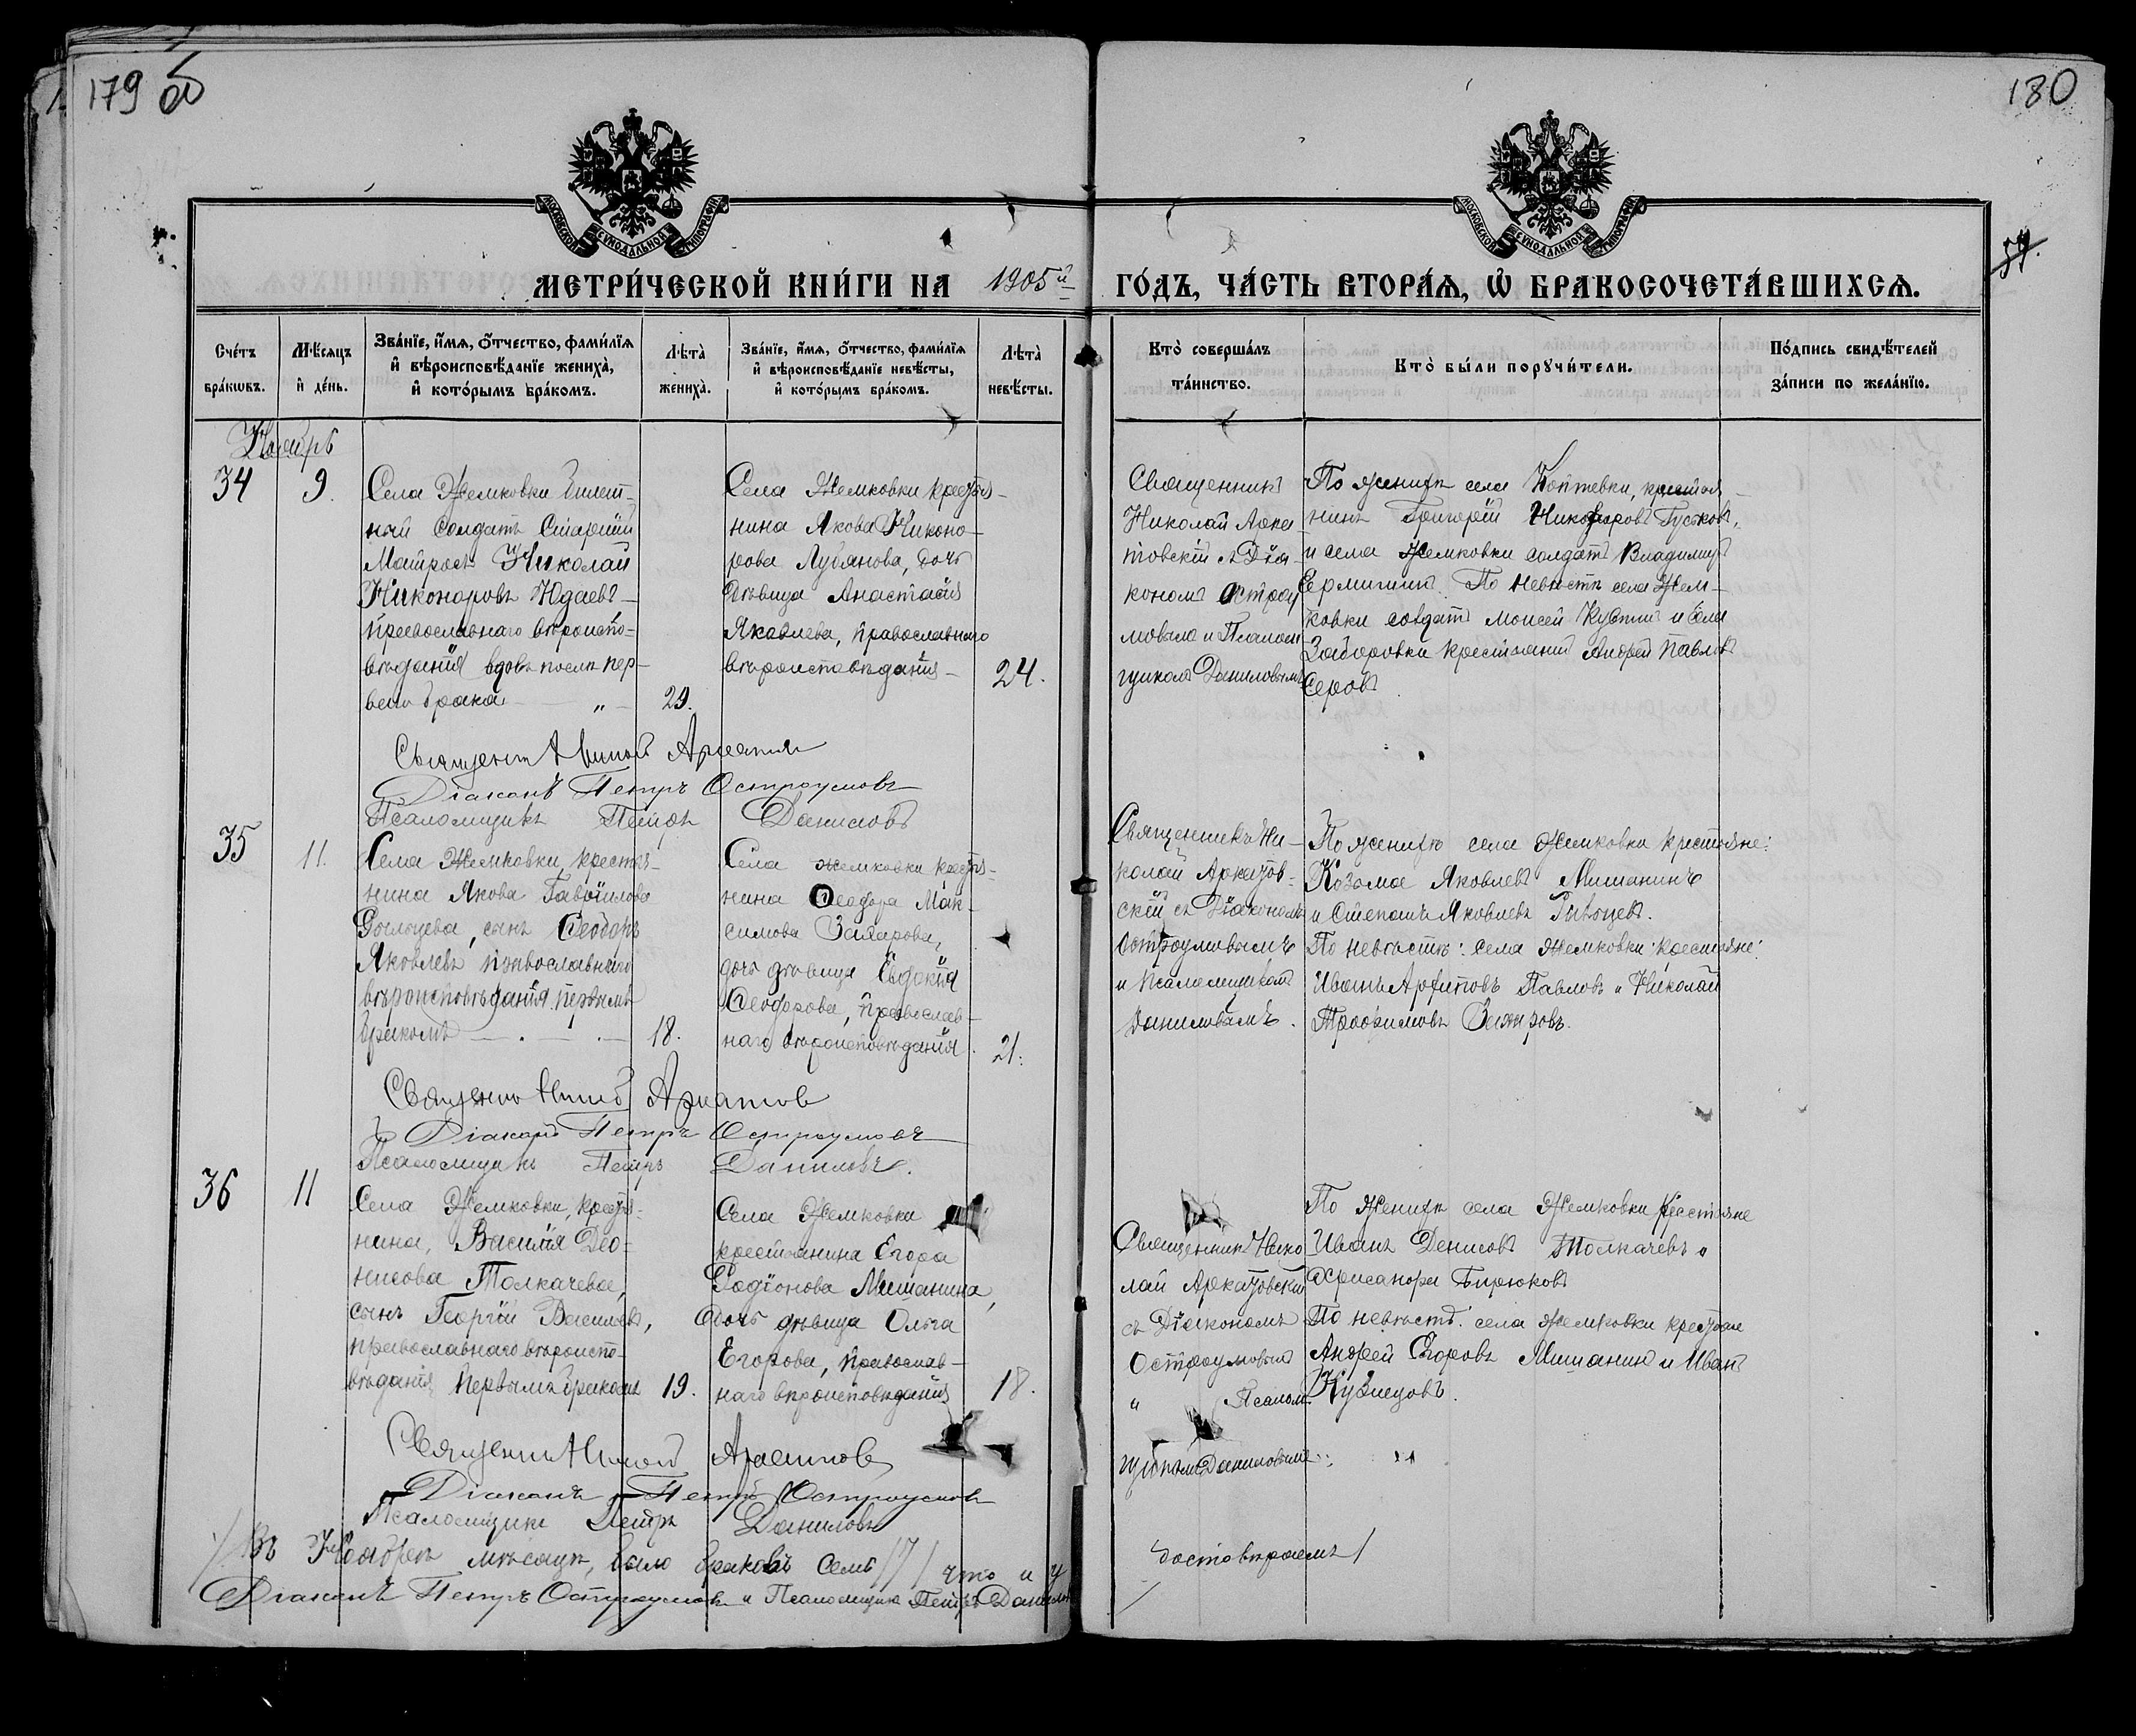 179 об
180
МОСКОВСКОЙ СѴНОДАЛЬНОЙ ТИПОГРАФІИ
МОСКОВСКОЙ СѴНОДАЛЬНОЙ ТИПОГРАФІИ
МЕТРИ́ЧЕСКОЙ КНИ́ГИ НА 1905й
ГО́ДЪ, ЧА́СТЬ ВТОРА́Ѧ, Ѡ҆ БРАКОСОЧЕТА́ВШИХСѦ.
Сче́тъ бра́кѡвъ.
Мѣ́сяцъ и҆ де́нь.
Зва́нїе, и҆́мѧ, о҆́тчество, фами́лїѧ
и҆ вѣроисповѣ́данїе жениха̀,
и҆ кото́рымъ бра́комъ.
Лѣта̀ жениха̀.
Зва́нїе, и҆́мѧ, о҆́тчество, фами́лїѧ
и҆ вѣроисповѣ́данїе невѣ́сты,
и҆ кото́рымъ бра́комъ.
Лѣта̀ невѣ́сты.
Кто̀ соверша́лъ
та́инство.
Кто̀ бы́ли порꙋчи́тели.
По́дпись свидѣ́телей
за́писи по жела́нїю.
Ноябрь
34
9.
Села Жемковки билет-
ный солдатъ Старшій
Матросъ Николай
Никоноровъ Юдаевъ
православнаго вѣроиспо-
вѣданія вдовъ послѣ пер-
ваго брака
29.
Села Жемковки крестья-
нина Якова Никоно-
рова Лубянова, дочь
дѣвица Анастасія
Яковлева, православнаго
вѣроисповѣданія
24.
Священникъ
Николай Арка-
товскій съ Діа-
кономъ Остроу
мовымъ и Псалом
щикомъ Даниловымъ
По женихѣ села Коптевки, крестья-
нинъ Григорій Никифоровъ Гуськовъ,
и села Жемковки солдатъ Владимиръ
По невѣстѣ села Жем-
ковки солдатъ Моисей и села
Заборовки крестьянинъ Андрей Павловъ
Серовъ
Священникъ
Діаконъ Петръ Остроумовъ
Псаломщикъ Петръ Даниловъ
35
11.
Села Жемковки, крестья-
нина Якова Гавріилова
сынъ Ѳеодоръ
Яковлевъ православнаго
вѣроисповѣданія первымъ
бракомъ
18.
Села Жемковки крестья-
нина Ѳеодора Мак-
симова Захарова,
дочь дѣвица Евдокія
Ѳеодорова, православ-
наго вѣроисповѣданія
21.
Священникъ Ни-
колай Аркатов-
скій съ Діакономъ
Остроумовымъ
и Псаломщикомъ
Даниловымъ.
По женихѣ села Жемковки крестьяне:
Козьма Яковлевъ Мишанинъ
и Степанъ Яковлевъ
По невѣстѣ: села Жемковки: крестьяне:
Иванъ Архиповъ Павловъ и Николай
Трофимовъ Захаровъ.
Священникъ
Діаконъ Петръ Остроумовъ
Псаломщикъ Петръ Даниловъ.
36
11
Села Жемковки, крестья-
нина, Василія Дiо-
нисова Толкачева,
сынъ Георгій Васильевъ,
православнаго вѣроиспо-
вѣданія первымъ бракомъ
19.
Села Жемковки
крестьянина Егора
Родіонова Мишанина,
дочь дѣвица Ольга
Егорова, православ-
наго вѣроисповѣданія
18.
Священникъ Нико
лай Аркатовскій
съ Діакономъ
Остроумовымъ
и Псалом
щикомъ Даниловымъ
По женихѣ села Жемковки крестьяне
Иванъ Денисовъ Толкачевъ и
Бирюковъ
По невѣстѣ: села Жемковки крестьяне
Андрей Егоровъ Мишанинъ и Иванъ
Кузнецовъ.
Священникъ
Діаконъ Петръ Остроумовъ
Псаломщикъ Петръ Даниловъ
/ Въ Ноябрѣ мѣсяцѣ, было браковъ семь /7/ что и у
достовѣряемъ /
Діаконъ Петръ Остроумовъ и Псаломщикъ Петръ Даниловъ